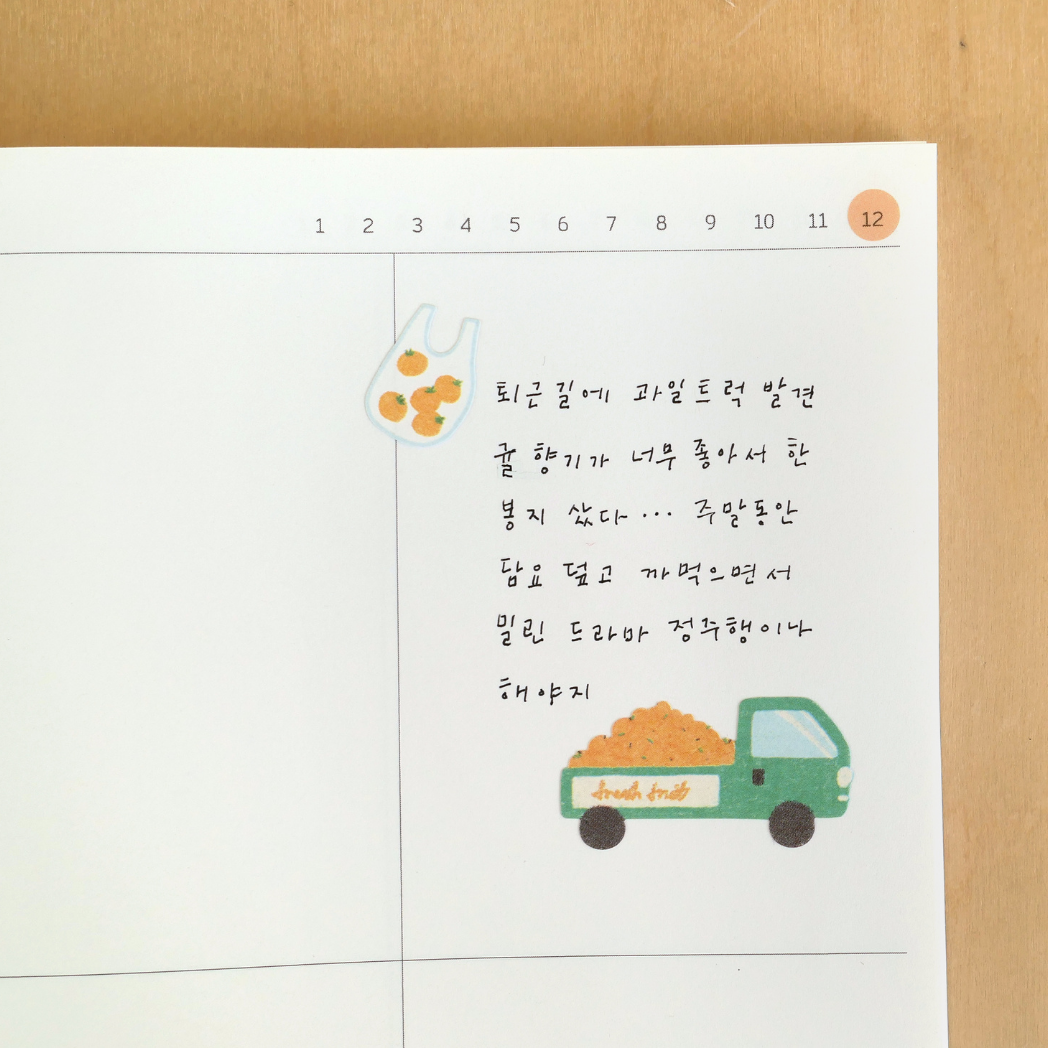 1 2 3 4 5 6 7 8 9 10 11 12
퇴근길에 과일트럭 발견
귤 향기가 너무 좋아서 한
봉지 샀다... 주말동안
담요 덮고 까먹으면서
밀린 드라마 정주행이나
해야지
fresh fruit